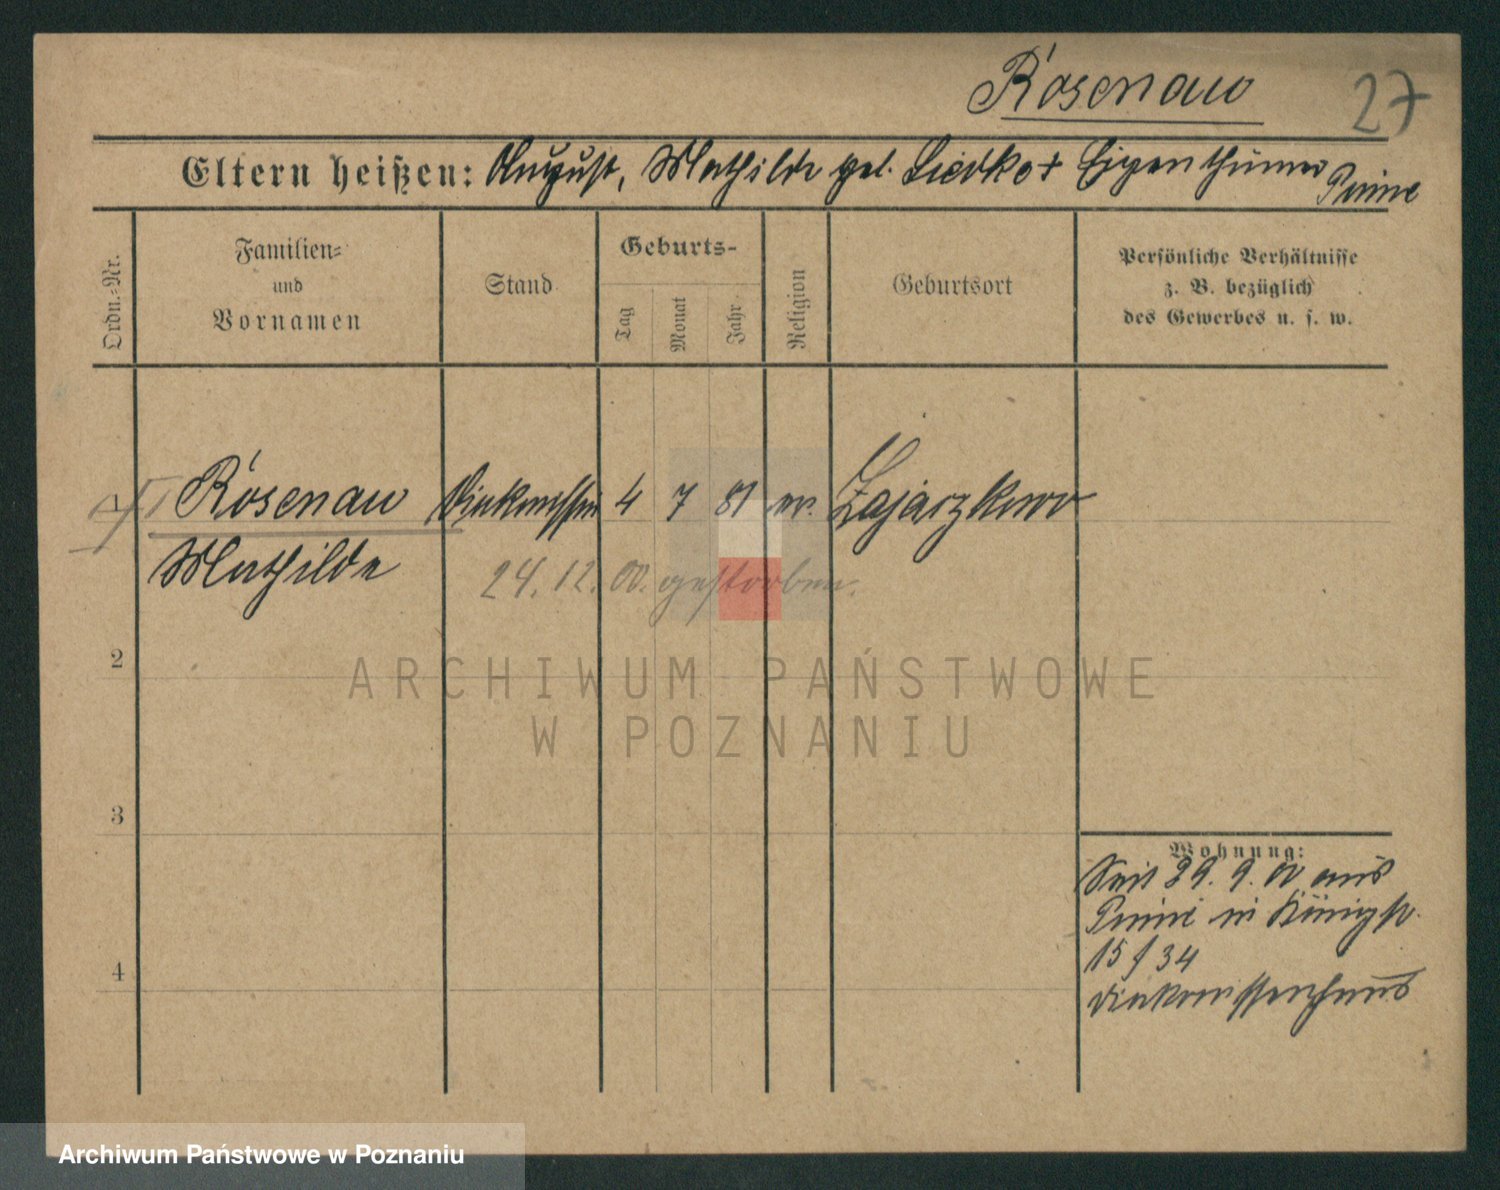 Rosenau
27
Eltern heißen: August, Mathilde geb. Liedke + Eigenthümer Pinne
Ordn.-Nr.
Familien-
und
Vornamen
Stand
Geburts-
Tag
Monat
Jahr
Religion
Geburtsort
Persönliche Verhältnisse
z. B. bezüglich
des Gewerbes u. s. w.
1 Rosenau Diakonissin 4 7 81 ev. Zajaczkowo
Mathilde
24.12.00. gestorben.
2
3
4
ARCHIWUM PAŃSTWOWE
W POZNANIU
Wohnung:
Seit 29. 9. 00 aus
Pinne in Königstr.
15 / 34
Diakonissenhaus
Archiwum Państwowe w Poznaniu